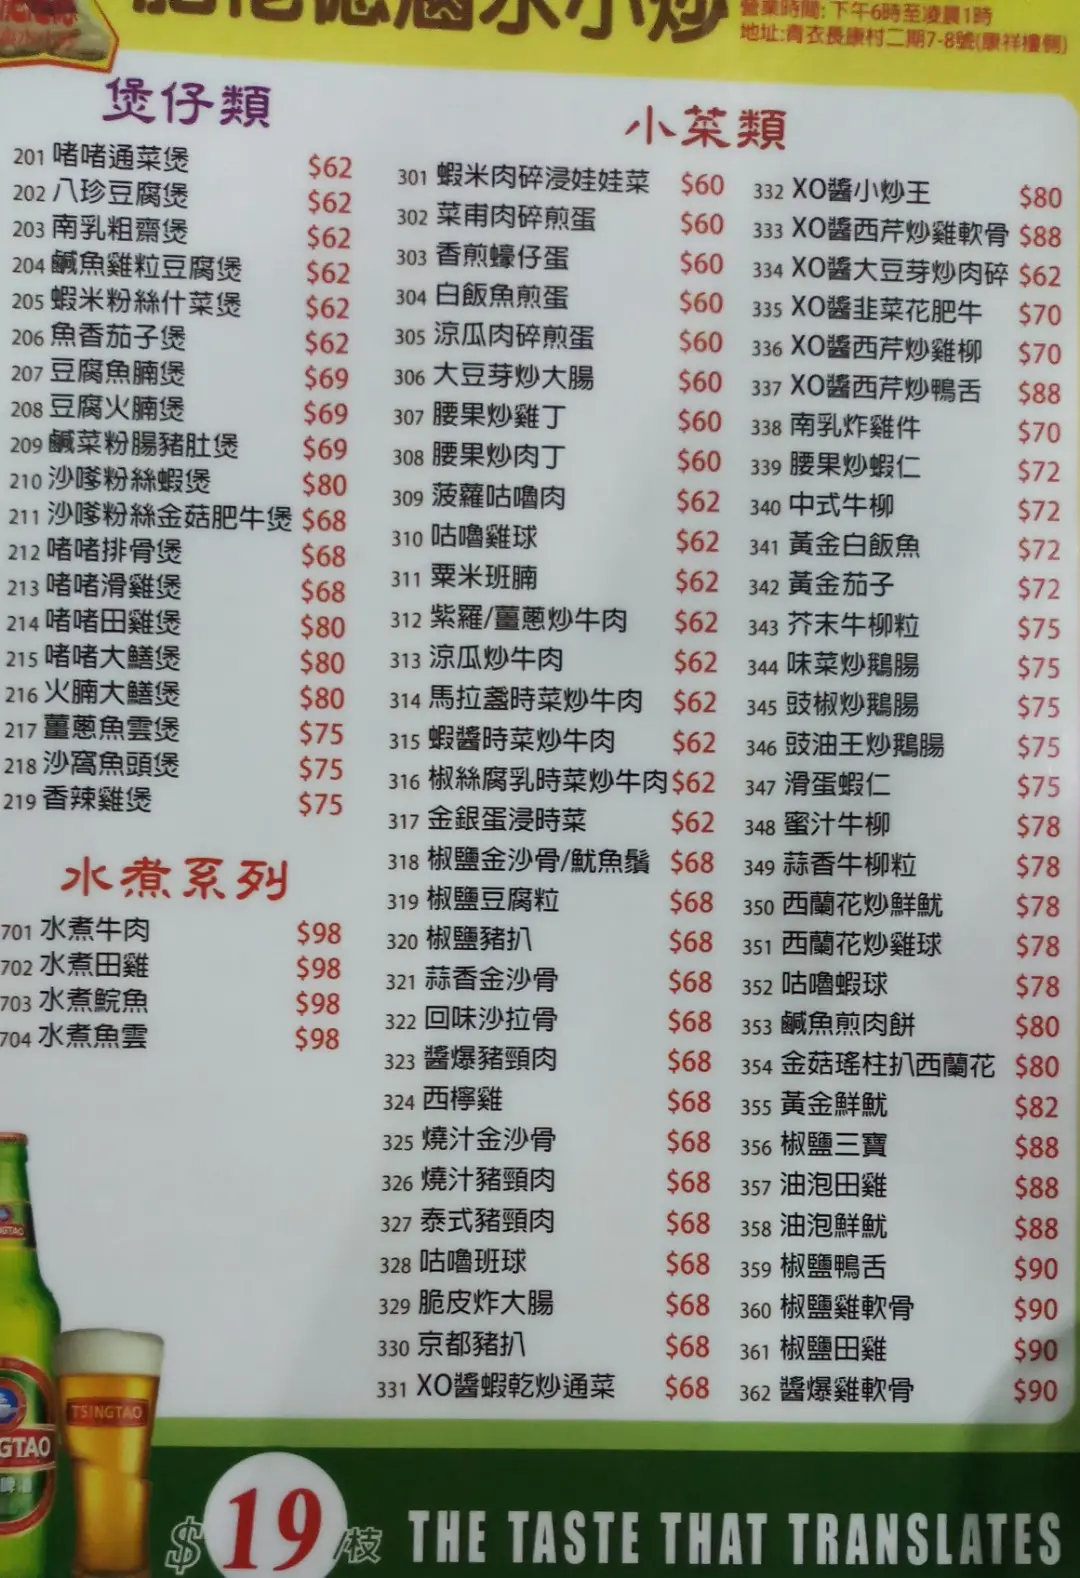 滷水小炒
營業時間:下午6時至凌晨1時
地址:青衣長康村二期7-8號(康祥樓側)
煲仔類
201 啫啫通菜煲 $62
202 八珍豆腐煲 $62
203 南乳粗齋煲 $62
204 鹹魚雞粒豆腐煲 $62
205 蝦米粉絲什菜煲 $62
206 魚香茄子煲 $62
207 豆腐魚腩煲 $69
208 豆腐火腩煲 $69
209 鹹菜粉腸豬肚煲 $69
210 沙嗲粉絲蝦煲 $80
211 沙嗲粉絲金菇肥牛煲 $68
212 啫啫排骨煲 $68
213 啫啫滑雞煲 $68
214 啫啫田雞煲 $80
215 啫啫大鱔煲 $80
216 火腩大鱔煲 $80
217 薑蔥魚雲煲 $75
218 沙窩魚頭煲 $75
219 香辣雞煲 $75
水煮系列
701 水煮牛肉 $98
702 水煮田雞 $98
703 水煮鯇魚 $98
704 水煮魚雲 $98
小菜類
301 蝦米肉碎浸娃娃菜 $60
302 菜甫肉碎煎蛋 $60
303 香煎蠔仔蛋 $60
304 白飯魚煎蛋 $60
305 涼瓜肉碎煎蛋 $60
306 大豆芽炒大腸 $60
307 腰果炒雞丁 $60
308 腰果炒肉丁 $60
309 菠蘿咕嚕肉 $62
310 咕嚕雞球 $62
311 粟米班腩 $62
312 紫羅/薑蔥炒牛肉 $62
313 涼瓜炒牛肉 $62
314 馬拉盞時菜炒牛肉 $62
315 蝦醬時菜炒牛肉 $62
316 椒絲腐乳時菜炒牛肉 $62
317 金銀蛋浸時菜 $62
318 椒鹽金沙骨/魷魚鬚 $68
319 椒鹽豆腐粒 $68
320 椒鹽豬扒 $68
321 蒜香金沙骨 $68
322 回味沙拉骨 $68
323 醬爆豬頸肉 $68
324 西檸雞 $68
325 燒汁金沙骨 $68
326 燒汁豬頸肉 $68
327 泰式豬頸肉 $68
328 咕嚕班球 $68
329 脆皮炸大腸 $68
330 京都豬扒 $68
331 XO醬蝦乾炒通菜 $68
332 XO醬小炒王 $80
333 XO醬西芹炒雞軟骨 $88
334 XO醬大豆芽炒肉碎 $62
335 XO醬韭菜花肥牛 $70
336 XO醬西芹炒雞柳 $70
337 XO醬西芹炒鴨舌 $88
338 南乳炸雞件 $70
339 腰果炒蝦仁 $72
340 中式牛柳 $72
341 黃金白飯魚 $72
342 黃金茄子 $72
343 芥末牛柳粒 $75
344 味菜炒鵝腸 $75
345 豉椒炒鵝腸 $75
346 豉油王炒鵝腸 $75
347 滑蛋蝦仁 $75
348 蜜汁牛柳 $78
349 蒜香牛柳粒 $78
350 西蘭花炒鮮魷 $78
351 西蘭花炒雞球 $78
352 咕嚕蝦球 $78
353 鹹魚煎肉餅 $80
354 金菇瑤柱扒西蘭花 $80
355 黃金鮮魷 $82
356 椒鹽三寶 $88
357 油泡田雞 $88
358 油泡鮮魷 $88
359 椒鹽鴨舌 $90
360 椒鹽雞軟骨 $90
361 椒鹽田雞 $90
362 醬爆雞軟骨 $90
TSINGTAO
GTAO
$19/枝
THE TASTE THAT TRANSLATES